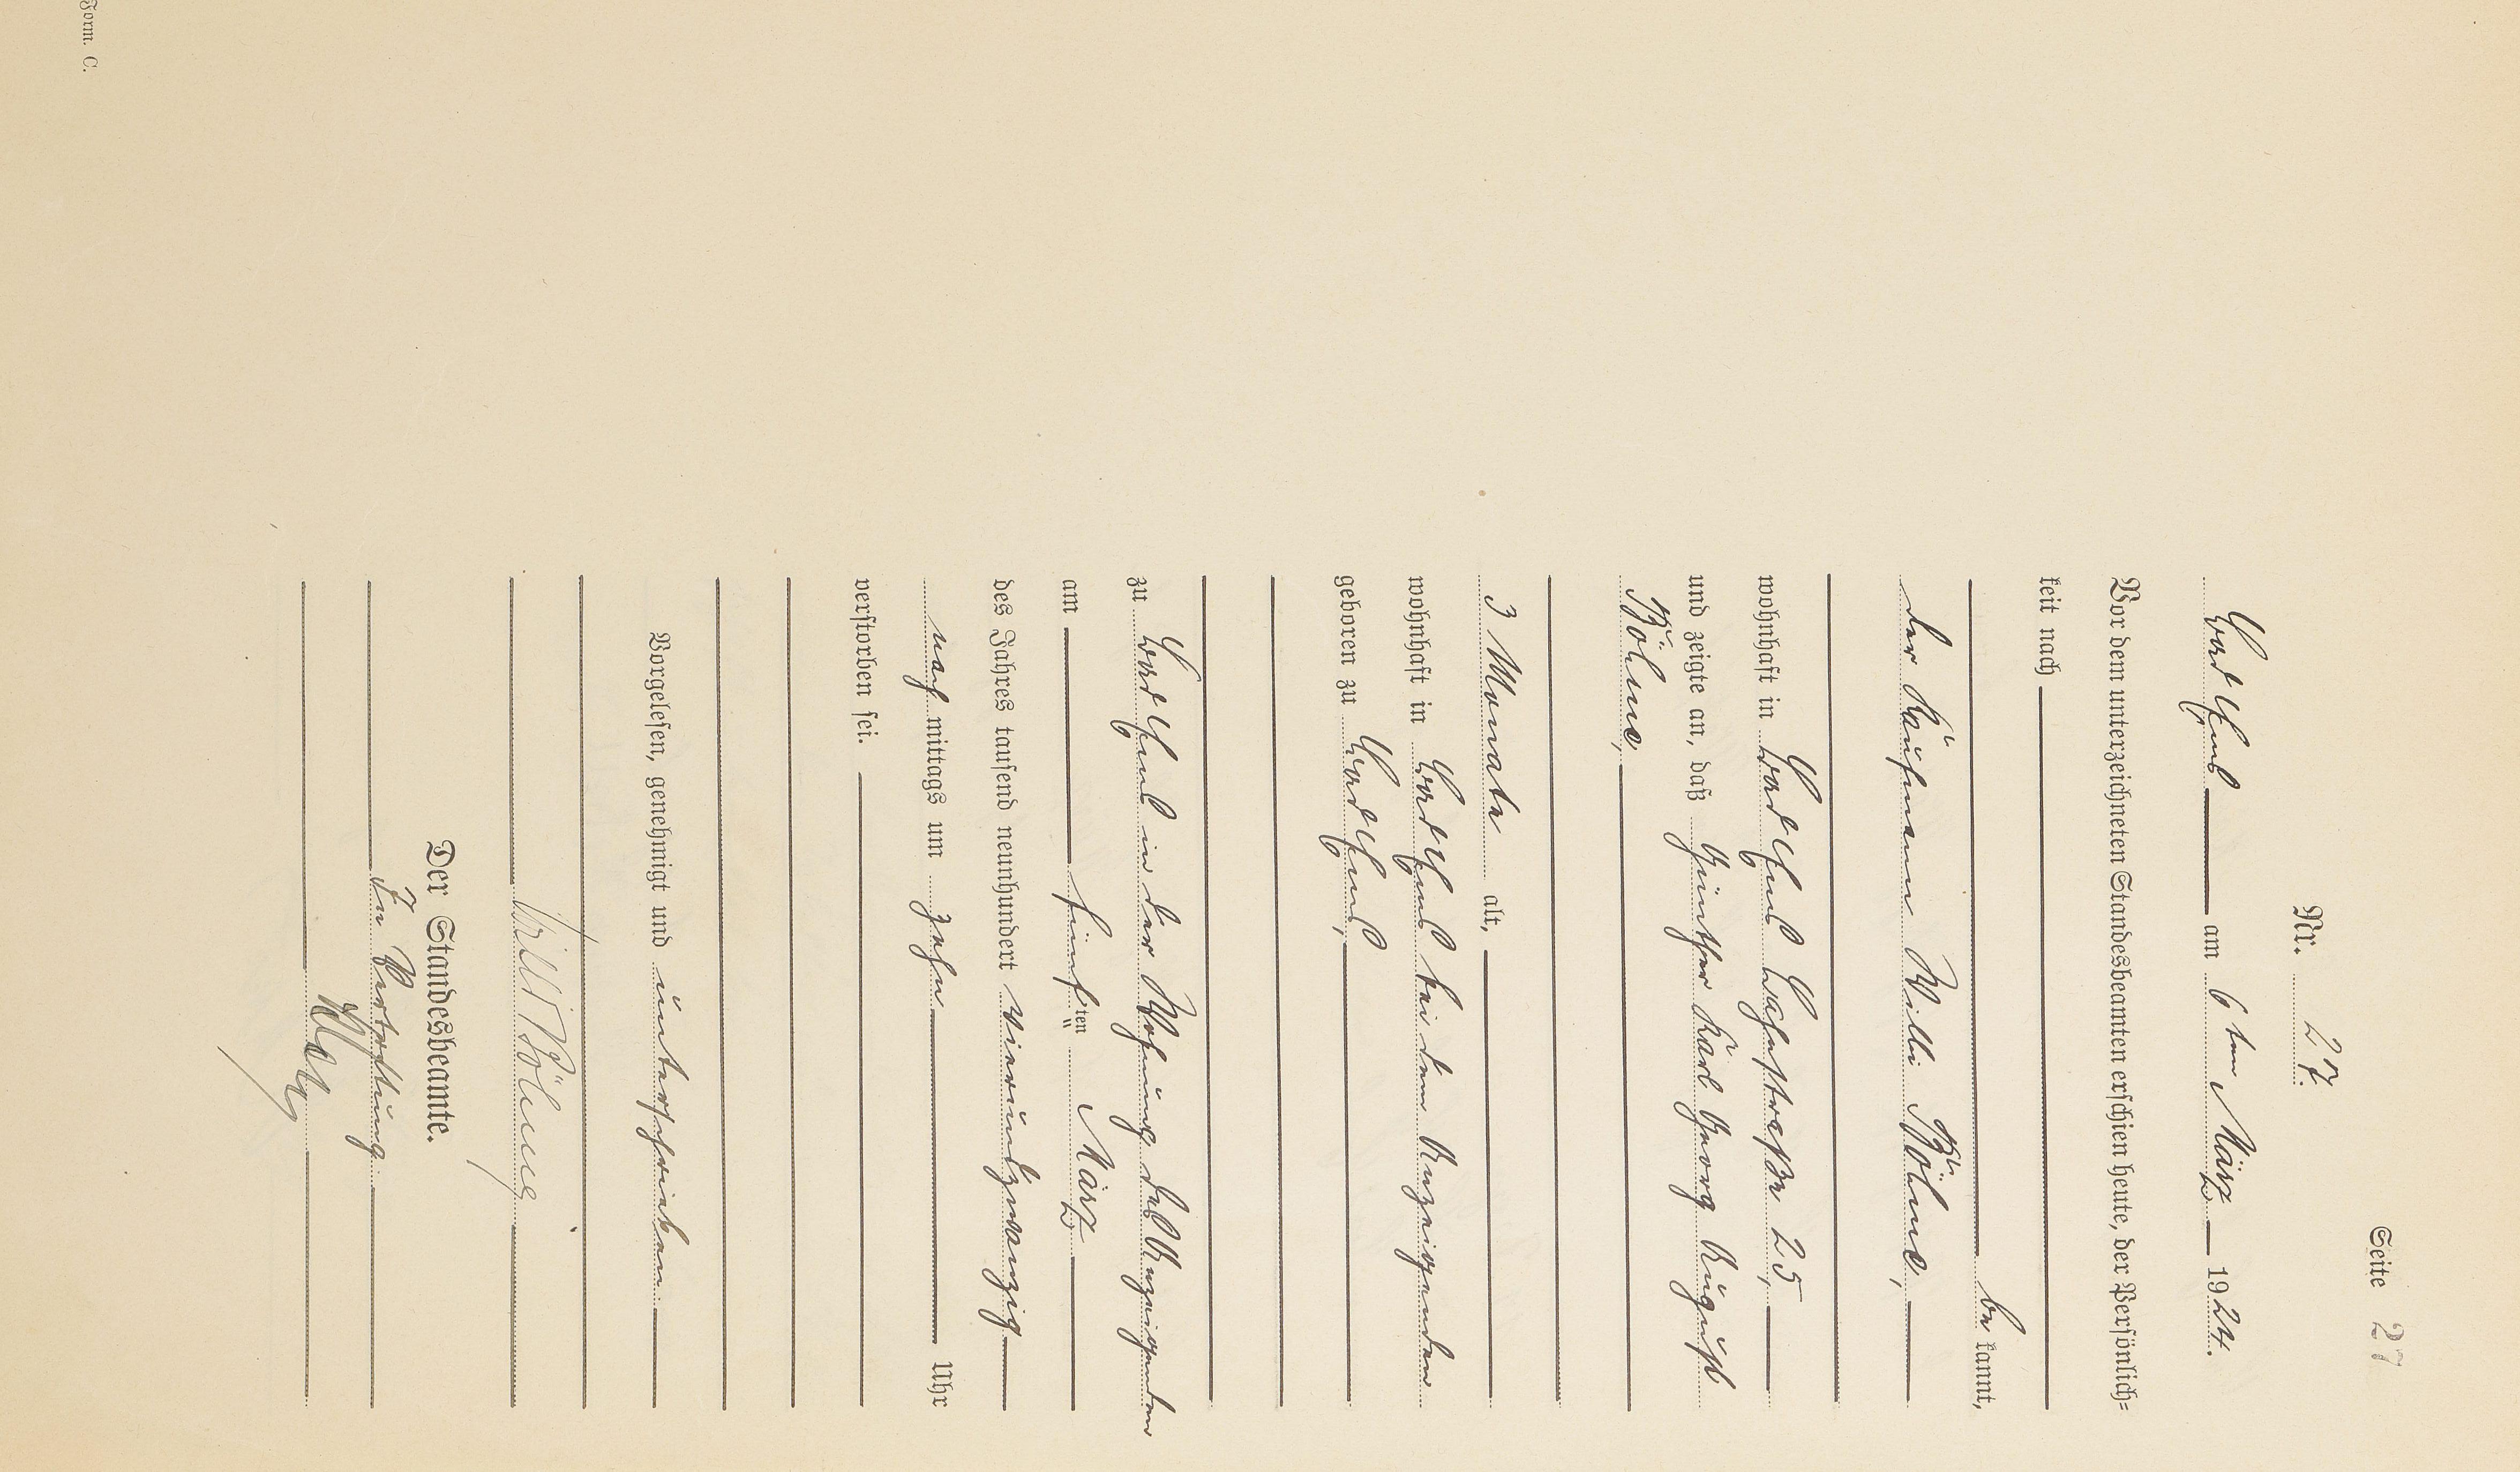 Seite 27
Nr. 27.
am 6ten März 1924.
Vor dem unterzeichneten Standesbeamten erschien heute, der Persönlich-
keit nach
be kannt,
der Kaufmann Willi Böhme,
wohnhaft in 25,
und zeigte an, daß Günther Karl Georg August
Böhme,
3 Monate alt,
wohnhaft in bei dem Anzeigenden
geboren zu
zu in der Wohnung des Anzeigenden
am fünf ten März
des Jahres tausend neunhundert vierundzwanzig
nach mittags um zehn Uhr
verstorben sei.
Vorgelesen, genehmigt und unterschrieben
Willi Böhme
Der Standesbeamte.
In Vertretung
Form. C.